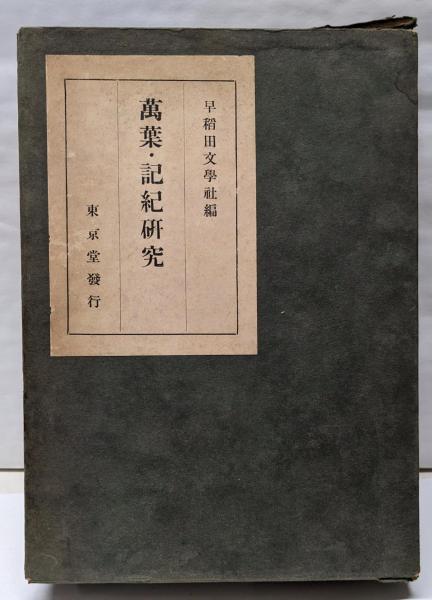 早稻田文學社編
萬葉・記紀硏究
東京堂發行